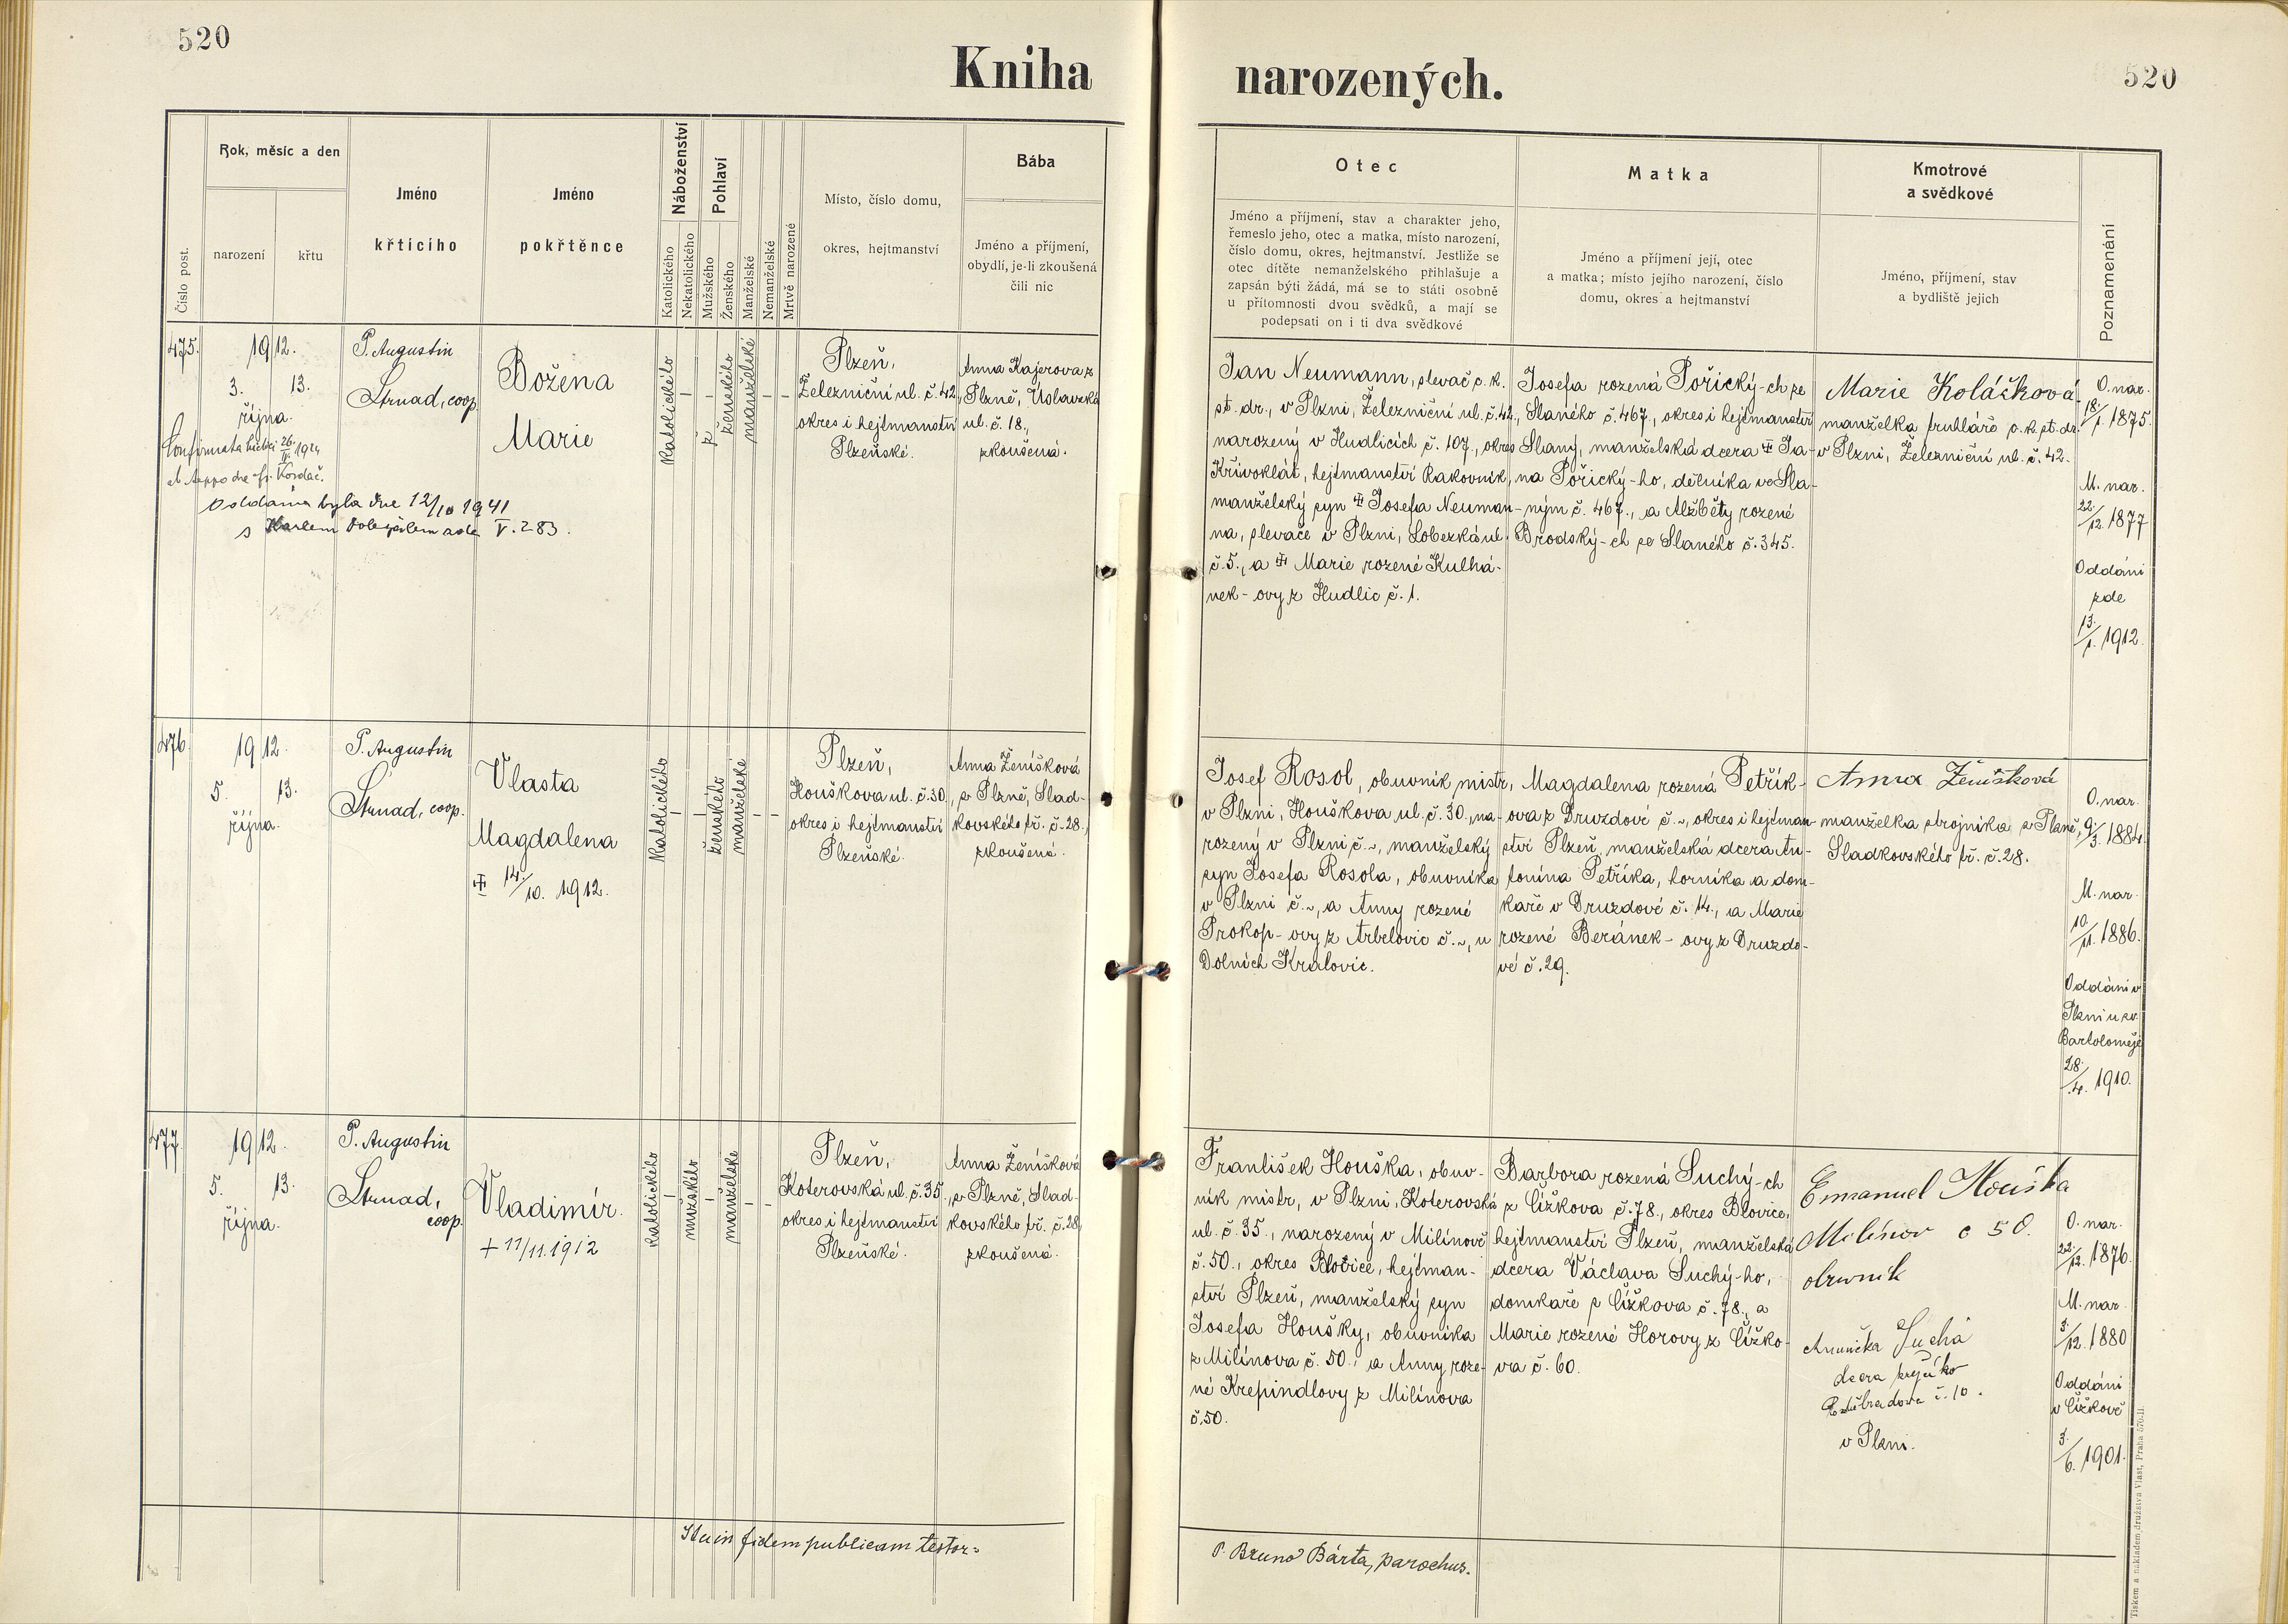 520
Kniha
narozených.
520
Číslo post.
Rok, měsíc a den
narození
křtu
Jméno
křticího
Jméno
pokřtěnce
Náboženství
Katolického
Nekatolického
Pohlaví
Mužského
Ženského
Manželské
Nemanželské
Mrtvě narozené
Místo, číslo domu,
okres, hejtmanství
Bába
Jméno a příjmení,
obydlí, je-li zkoušená
čili nic
Otec
Jméno a příjmení, stav a charakter jeho,
řemeslo jeho, otec a matka, místo narození,
číslo domu, okres, hejtmanství. Jestliže se
otec dítěte nemanželského přihlašuje a
zapsán býti žádá, má se to státi osobně
u přítomnosti dvou svědků, a mají se
podepsati on i ti dva svědkové
Matka
Jméno a příjmení její, otec
a matka; místo jejího narození, číslo
domu, okres a hejtmanství
Kmotrové
a svědkové
Jméno, příjmení, stav
a bydliště jejich
Poznamenání
475.
1912.
3. 13.
října.
P. Augustin
Strnad, coop.
Božena
Marie
katolického
–
–
ženského
manželské
–
–
Plzeň,
Železniční ul. č. 42,
okres i hejtmanství
Plzeňské.
Anna Kajerova z
Plzně, Úslavská
ul. č. 18.,
zkoušená.
Oddána byla dne 12/10 1941
s Karlem Doležálem zde V. 283.
Jan Neumann, slevač c. k.
st. dr., v Plzni, Železniční ul. č. 42.,
narozený v Hudlicích č. 107., okres
Křivoklát, hejtmanství Rakovník,
manželský syn Josefa Neuman-
na, slevače v Plzni, Lobezká ul.
č. 5., a Marie rozené Kulhá-
nek-ovy z Hudlic č. 1.
Josefa rozená Pořický-ch ze
Slaného č. 467., okres i hejtmanství
Slaný, manželská dcera Ja-
na Pořický-ho, dělníka ve Sla-
ným č. 467., a Alžběty rozené
Brodský-ch ze Slaného č. 345.
Marie Koláčková
manželka truhláře c. k. st. dr.
v Plzni, Železniční ul. č. 42.
O. nar.
18./1. 1875.
M. nar.
22./12. 1877
Oddáni
zde
13./1. 1912.
476.
1912.
5. 13.
října.
P. Augustin
Strnad, coop.
Vlasta
Magdalena
14./10. 1912.
katolického
–
–
ženského
manželské
–
–
Plzeň,
Houškova ul. č. 30.,
okres i hejtmanství
Plzeňské.
Anna Ženíšková
z Plzně, Slad-
kovského tř. č. 28.,
zkoušená.
Josef Rosol, obuvník mistr,
v Plzni, Houškova ul. č. 30., na-
rozený v Plzni č. ~, manželský
syn Josefa Rosola, obuvníka
v Plzni č. ~, a Anny rozené
Prokop-ovy z Arbelovic č. ~, u
Dolních Kralovic.
Magdalena rozená Petřík-
ova z Druzdové č. ~, okres i hejtman-
ství Plzeň, manželská dcera An-
tonína Petříka, horníka a dom-
kaře v Druzdové č. 14., a Marie
rozené Beránek-ovy z Druzdo-
vé č. 29.
Anna Ženíšková
manželka strojníka z Plzně,
Sladkovského tř. č. 28.
O. nar.
9./3. 1884.
M. nar.
10./11. 1886.
Oddáni v
Plzni u sv.
Bartoloměje
28./4. 1910.
477.
1912.
5. 13.
října.
P. Augustin
Strnad,
coop.
Vladimír.
+ 11/11. 1912
katolického
–
mužského
–
manželské
–
–
Plzeň,
Koterovská ul. č. 35.,
okres i hejtmanství
Plzeňské.
Anna Ženíšková
z Plzně, Slad-
kovského tř. č. 28,
zkoušená.
František Houška, obuv-
ník mistr, v Plzni, Koterovská
ul. č. 35., narozený v Milínově
č. 50., okres Blovice, hejtman-
ství Plzeň, manželský syn
Josefa Houšky, obuvníka
z Milínova č. 50., a Anny roze-
né Krepindlovy z Milínova
č. 50.
Barbora rozená Suchý-ch
z Čížkova č. 78., okres Blovice,
hejtmanství Plzeň, manželská
dcera Václava Suchý-ho,
domkaře z Čížkova č. 78., a
Marie rozené Horovy z Čížko-
va č. 60.
Emanuel Houška
Milínov č 50.
obuvník
Suchá
dcera
č. 10.
v Plzni.
O. nar.
22./12. 1876.
M. nar.
3./12. 1880
Oddáni
v Čížkově
3./6. 1901.
Ita in fidem publicam testor:
P. Bruno Bárta, parochus.
Tiskem a nákladem družstva Vlast, Praha 570-II.